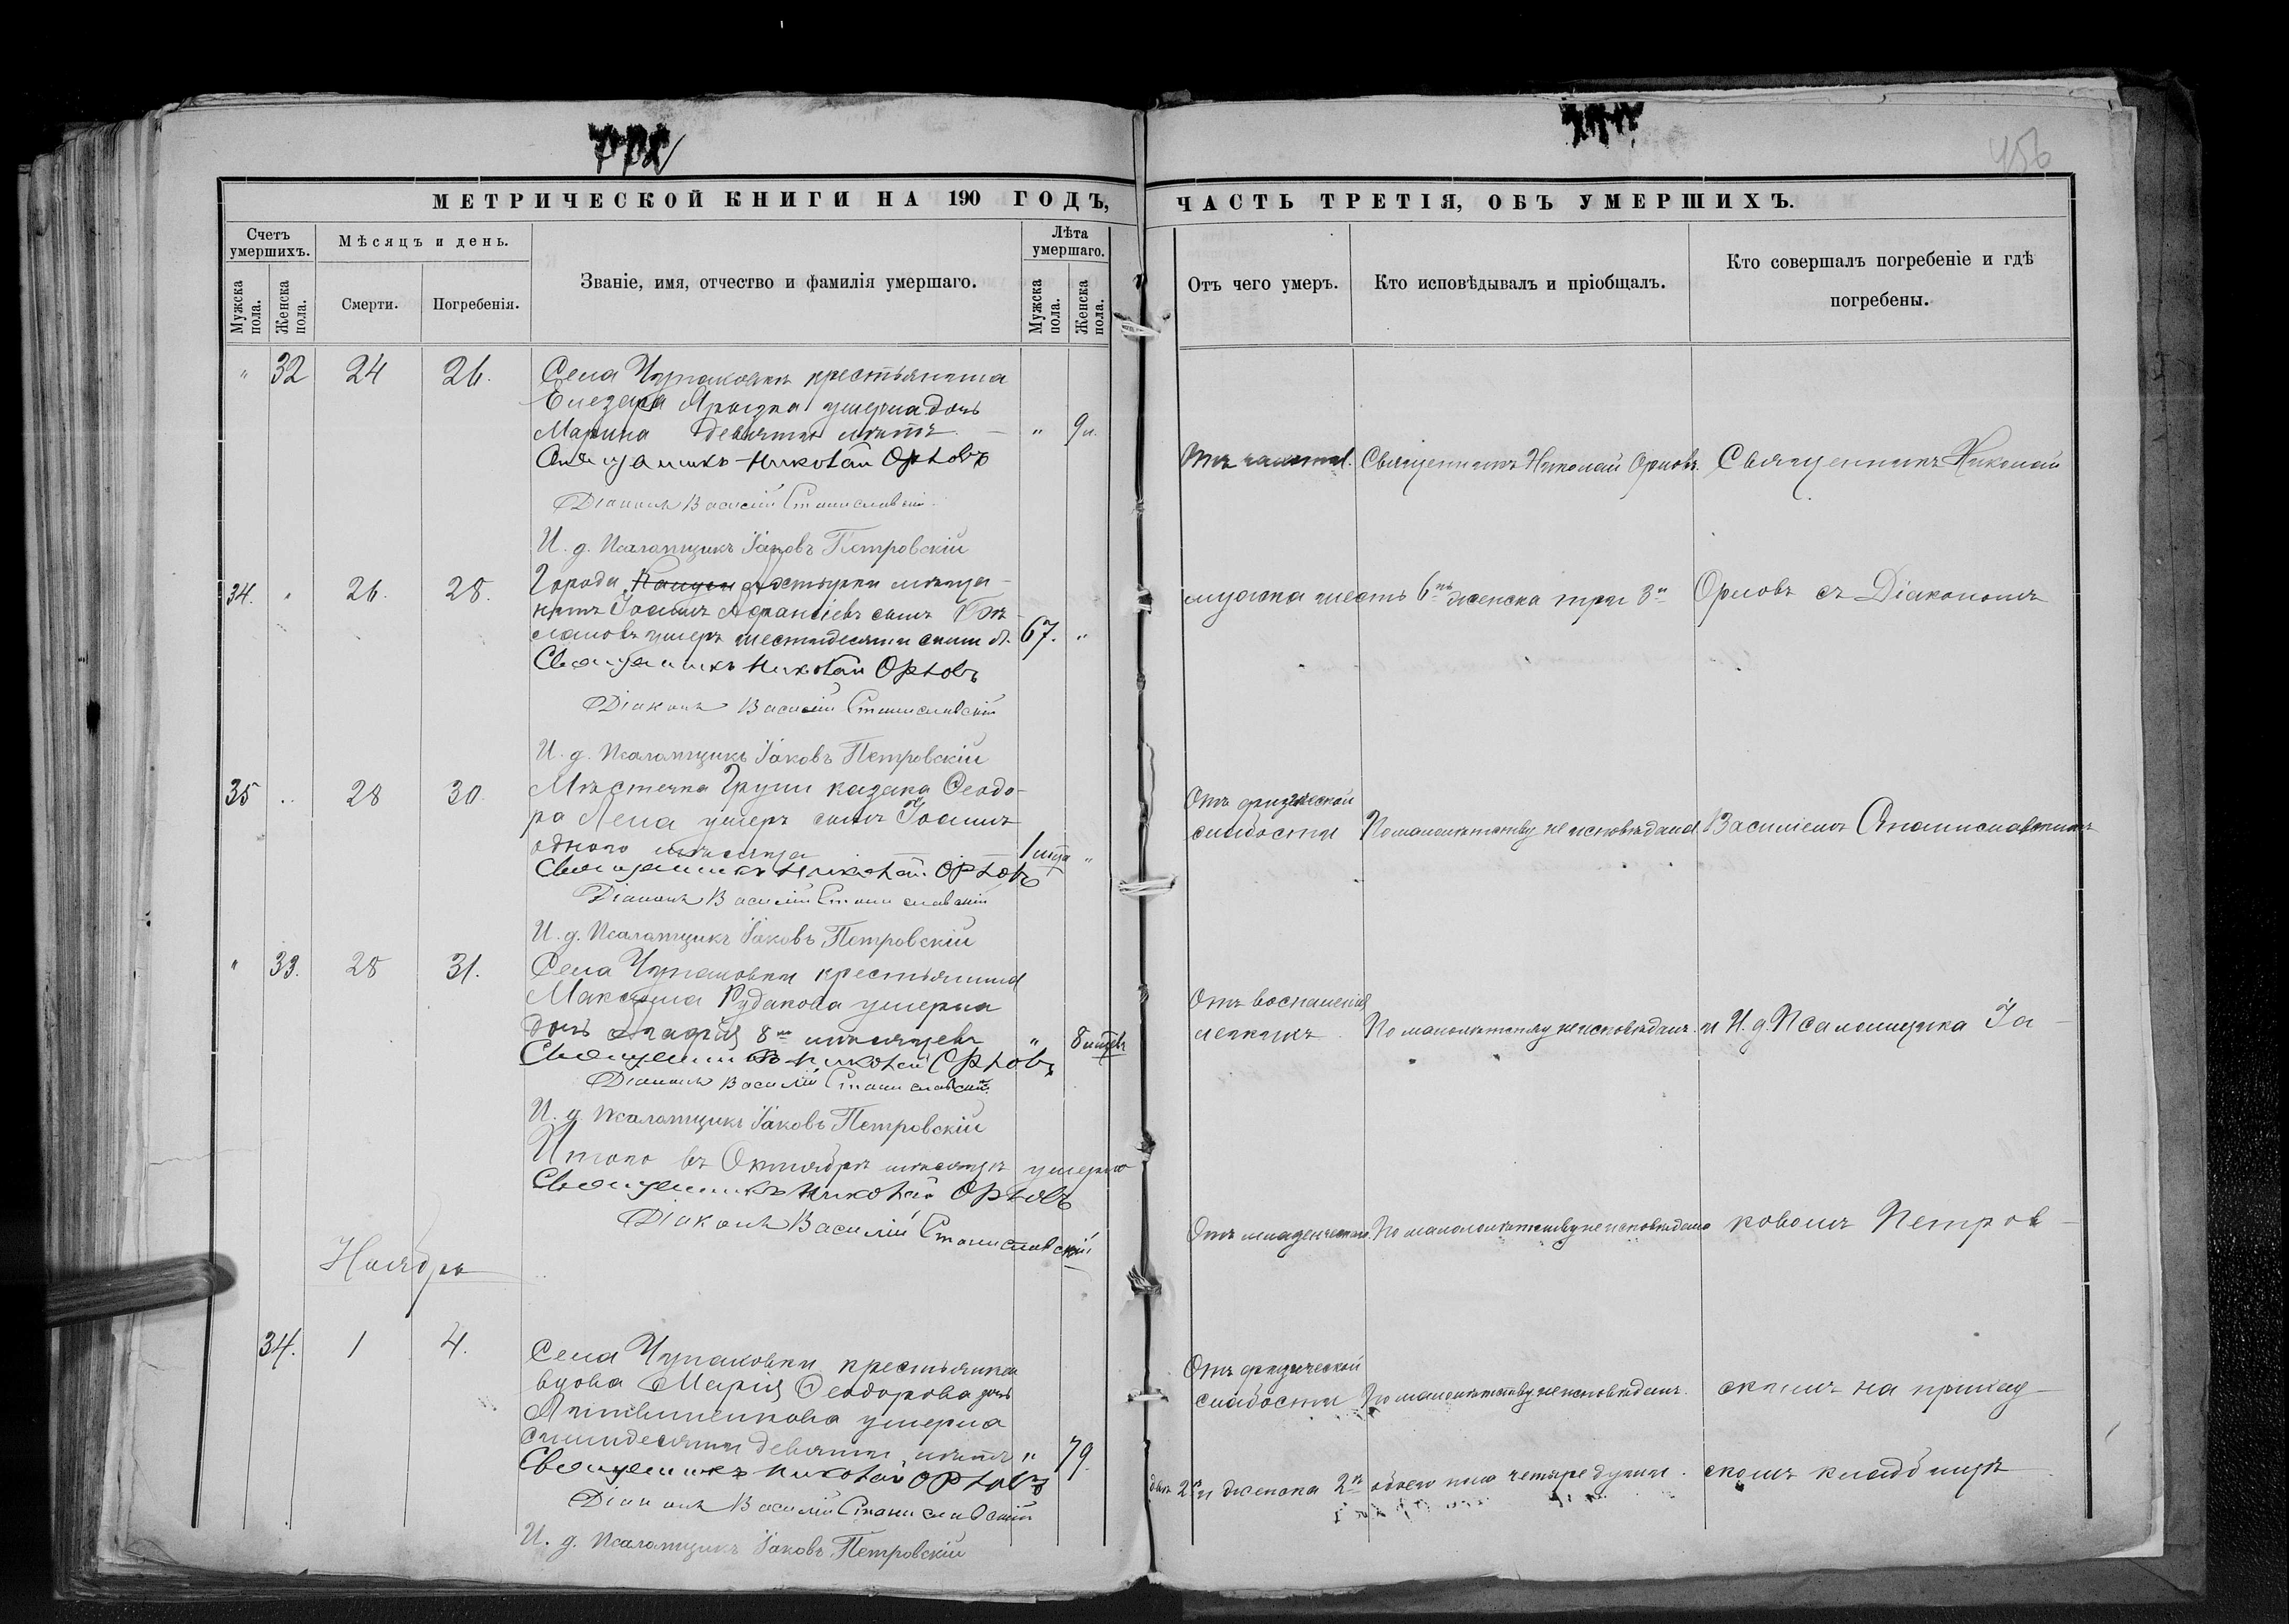 456
МЕТРИЧЕСКОЙ КНИГИ НА 190 ГОДЪ,
Счетъ умершихъ.
Мѣсяцъ и день.
Званіе, имя, отчество и фамилія умершаго.
Лѣта умершаго.
Мужска пола.
Женска пола.
Смерти.
Погребенія.
Мужска пола.
Женска пола.
" 32 24 26. Села Чупаковки крестьянина
умерла дочь
Марина девяти лѣтъ — " 9 л.
Священникъ Николай Орловъ
Діаконъ Василій Станиславскій
И. д. Псаломщикъ Іаковъ Петровскій
34. " 26. 28. Города мѣща-
нинъ Іоаннъ Афанасіевъ сынъ
умеръ шестидесяти семи л. 67. "
Священникъ Николай Орловъ
Діаконъ Василій Станиславскій
И. д. Псаломщикъ Іаковъ Петровскій
35 " 28 30. Мѣстечка Груни казака Ѳеодо-
ра Лепа умеръ сынъ Іоаннъ
одного мѣсяца — 1 мца "
Священникъ Николай Орловъ
Діаконъ Василій Станиславскій
И. д. Псаломщикъ Іаковъ Петровскій
" 33. 28 31. Села Чупаковки крестьянина
Максима Рудакова умерла
дочь 8ми мѣсяцевъ " 8 мцевъ
Священникъ Николай Орловъ
Діаконъ Василій Станиславскій
И. д. Псаломщикъ Іаковъ Петровскій
Итого въ Октябрѣ мѣсяцѣ умерло
Священникъ Николай Орловъ
Діаконъ Василій Станиславскій
Ноябрь
34. 1 4. Села Чупаковки крестьянка
вдова Марія Ѳеодорова дочь
умерла
семидесяти девяти лѣтъ " 79.
Священникъ Николай Орловъ
Діаконъ Василій Станиславскій
И. д. Псаломщикъ Іаковъ Петровскій
ЧАСТЬ ТРЕТІЯ, ОБЪ УМЕРШИХЪ.
Отъ чего умеръ.
Кто исповѣдывалъ и пріобщалъ.
Кто совершалъ погребеніе и гдѣ погребены.
Священникъ Николай Орловъ. Священникъ Николай
мужска шесть 6ть женска три 3и Орловъ съ Діакономъ
Отъ физической
слабости По малолѣтству не исповѣдана Василіемъ Станиславскимъ
Отъ воспаленія
легкихъ По малолѣтству не исповѣдан. и И. д. Псаломщика Іа-
Отъ младенческаго. По малолѣтству не исповѣдано ковомъ Петров-
Отъ физической
слабости По малолѣтству не исповѣдан. скимъ на приход-
два 2а и женска 2ѣ обоего пола четыре души. скомъ кладбищѣ